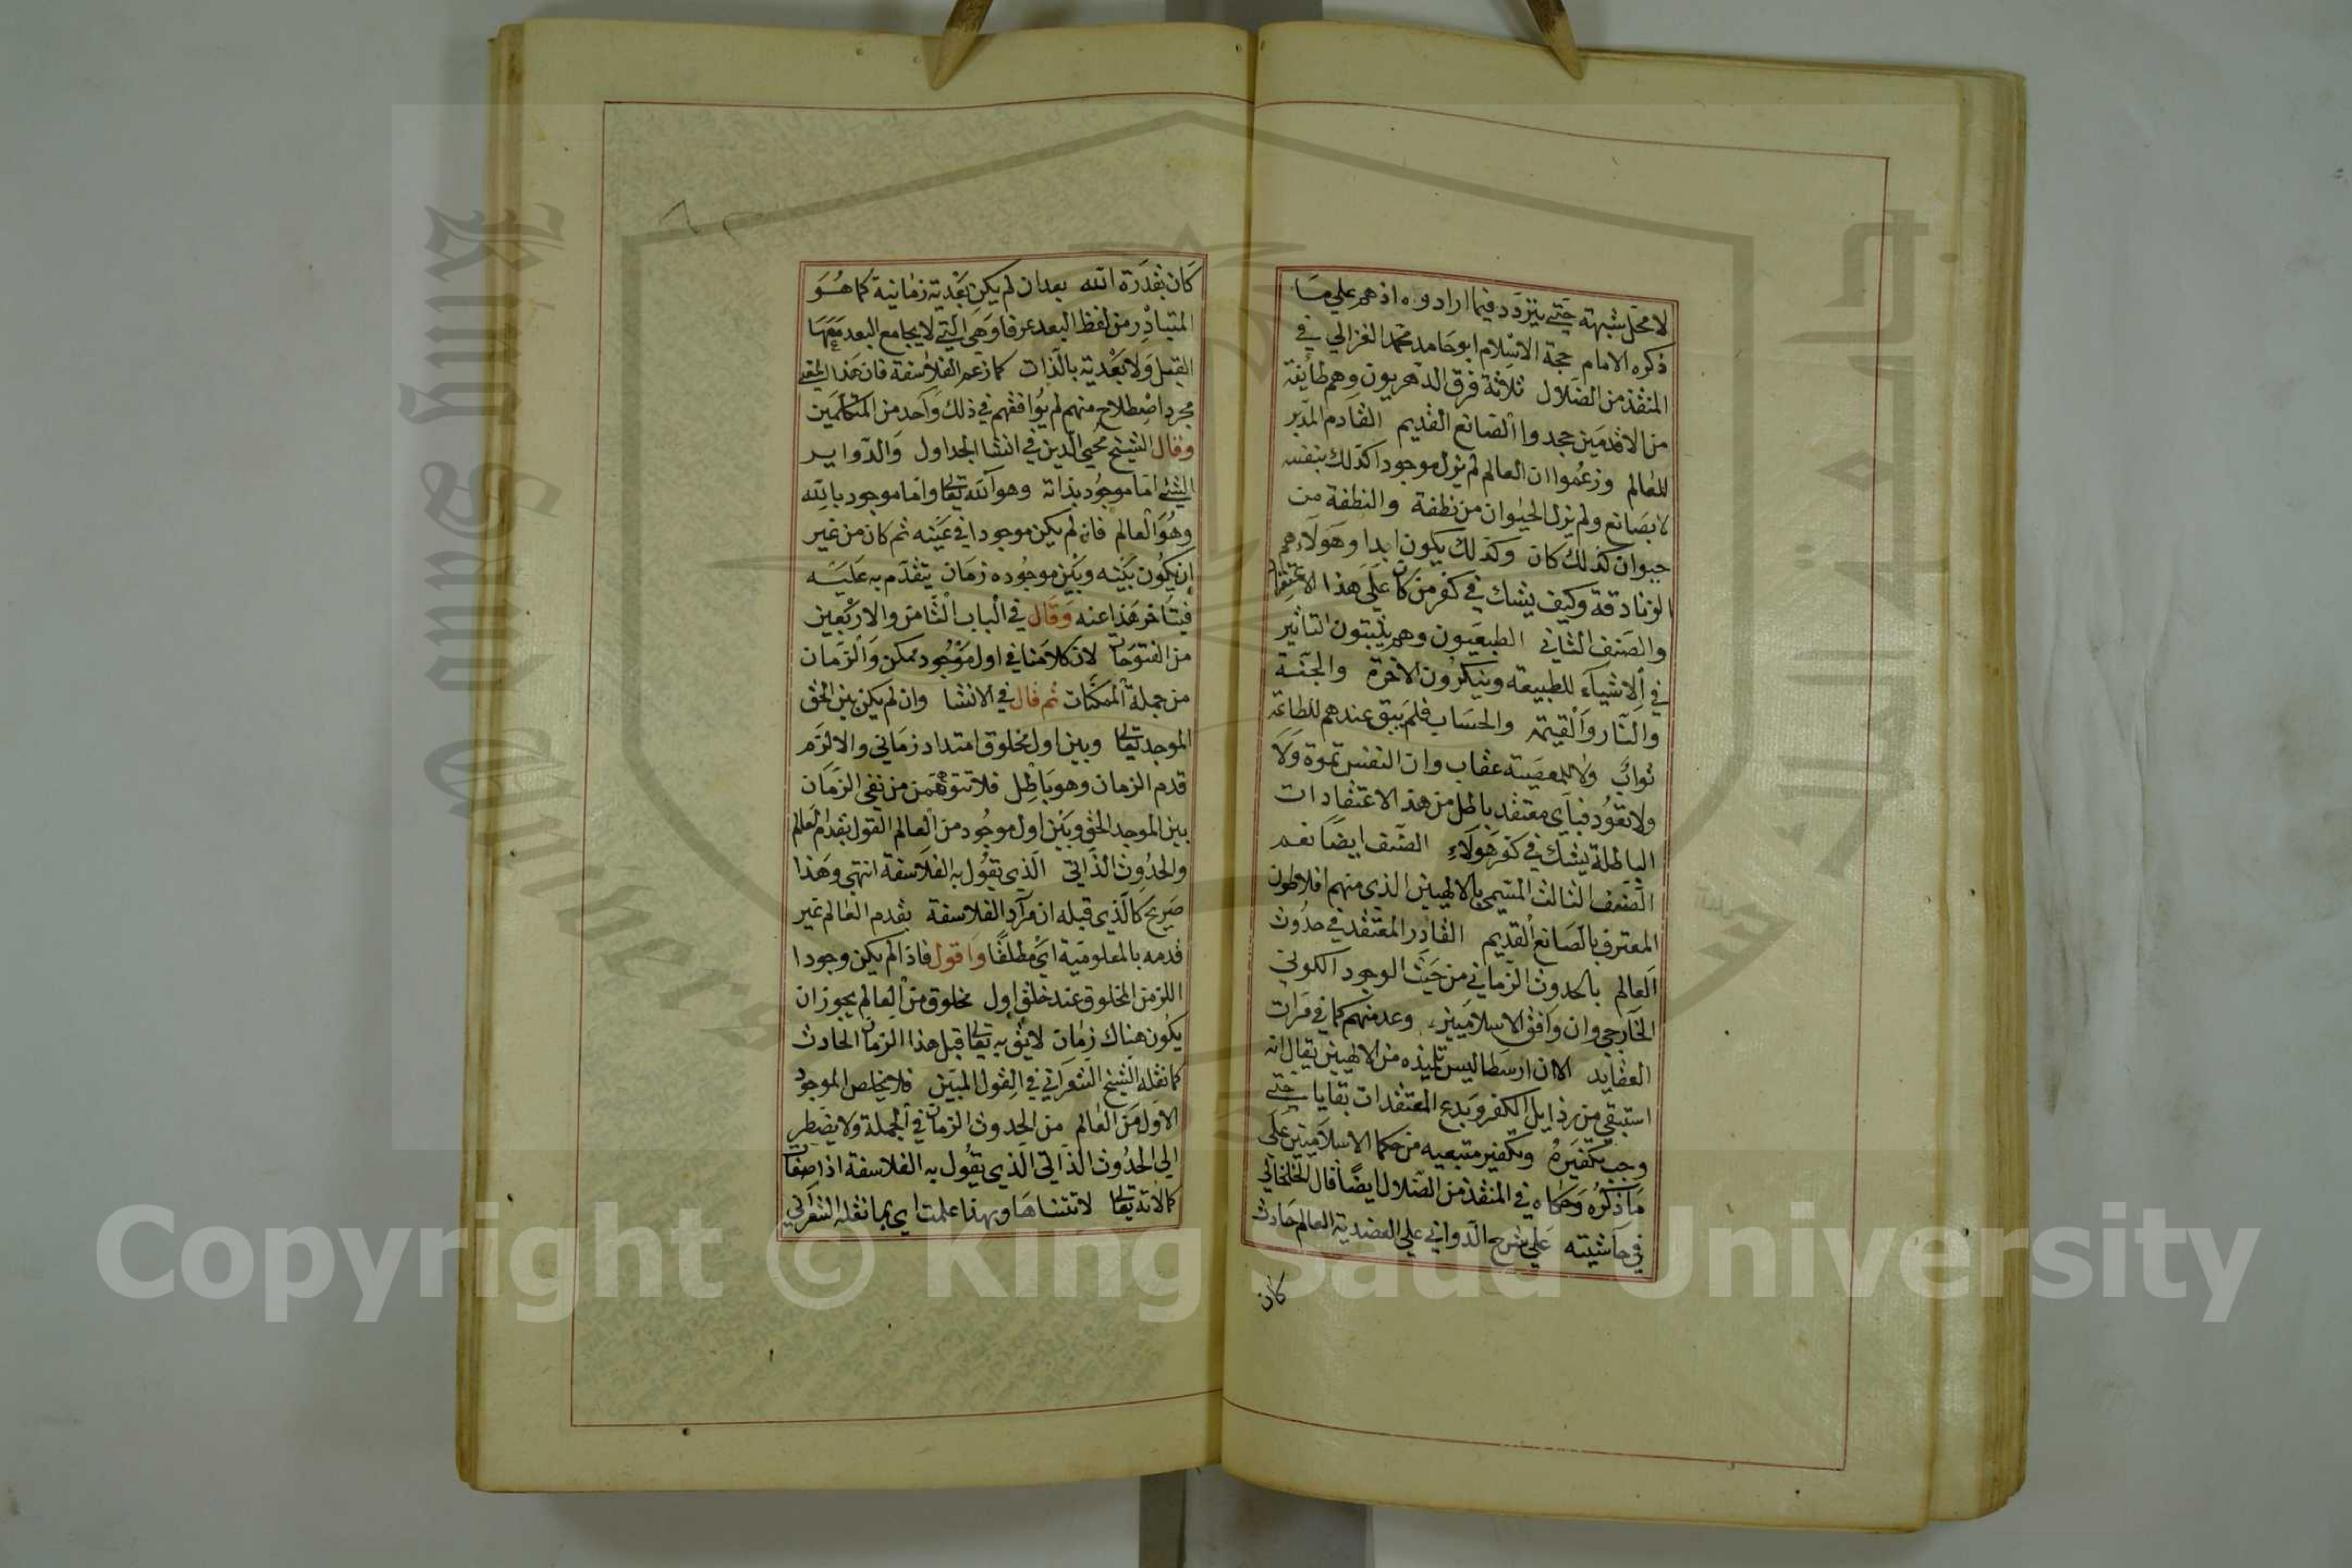 لا محل شبهته حتى يتردد فيما ارادوه اذ هم على ما
ذكره الامام حجة الاسلام ابو حامد محمد الغزالي في
المنقذ من الضلال ثلاثة فرق الدهريون وهم طائفة
من الاقدمين جحدوا الصانع القديم القادم المدبر
للعالم وزعموا ان العالم لم يزل موجودا كذلك بنفسه
لا بصانع ولم يزل الحيوان من نطفة والنطفة من
حيوان كذلك كان وكذلك يكون ابدا وهولاء هم
الزنادقة وكيف يشك في كفر من كان على هذا الاعتقاد
والصنف الثاني الطبعيون وهم يثبتون التاثير
في الاشياء للطبيعة وينكرون الاخرة والجنة
والنار والقيمة والحساب فلم يبق عندهم للطاعة
ثواب ولا للمعصية عقاب وان النفس تموة ولا
ولا تعود فباي معتقد باطل من هذ الاعتقادات
الباطلة يشك في كفر هولاء الصنف ايضا نعم
الصنف الثالث المسمى بالالهيين الذي منهم افلاطون
المعترف بالصانع القديم القادر المعتقد في حدوث
العالم بالحدوث الزماني من حيث الوجود الكوني
الخارجي وان وافق الاسلاميين وعد منهم كما في مرات
العقايد الا ان ارسطاليس تلميذه من الالهيين يقال انه
استبقى من رذايل الكفر وبدع المعتقدات بقايا حتى
وجب تكفيره وتكفير متبعيه من حكما الاسلاميين على
ما ذكره وحكاه في المنقذ من الضلال ايضا قال الخلخالي
في حاشيته على شرح الدواني على العضدية العالم حادث
كان
كان بقدرة الله بعد ان لم يكن بعدية زمانية كما هو
المتبادر من لفظ البعد عرفا وهي التي لا يجامع البعد معها
القبل ولا بعدية بالذات كما زعم الفلاسفة فان هذا المعنى
مجرد اصطلاح منهم لم يوافقهم في ذلك واحد من المتكلمين
وقال الشيخ محيي الدين في انشا الجداول والدواير
الشي اما موجود بذاته وهو الله تعالى واما موجود بالله
وهو العالم فانه لم يكن موجودا في عينه ثم كان من غير
ان يكون بينه وبين موجوده زمان يتقدم به عليه
فيتاخر هذا عنه وقال في الباب الثامن والاربعين
من الفتوحات لان كلامنا في اول موجود ممكن والزمان
من جملة الممكنات ثم قال في الانشا وان لم يكن بين الحق
الموجد تعالى وبين اول مخلوق امتداد زماني والا لزم
قدم الزمان وهو باطل فلا تتوهمن من نفي الزمان
بين الموجد الحق وبين اول موجود من العالم القول بقدم العالم
والحدوث الذاتي الذي يقول به الفلاسفة انتهى وهذا
صريح كالذي قبله ان مراد الفلاسفة بقدم العالم غير
قدمه بالمعلومية اي مطلقا واقول فاذا لم يكن وجودا
للزمن المخلوق عند خلق اول مخلوق من العالم يجوز ان
يكون هناك زمان لايق به تعالى قبل هذا الزمان الحادث
كما نقله الشيخ الشعراني في القول المبين فلا يخلص الموجود
الاول من العالم من الحدوث الزماني في الجملة ولا يضطر
الى الحدوث الذاتي الذي يقول به الفلاسفة اذ اصفات
كمالاته تعالى لا تتناها وبهذا علمت اي بما نقله الشعراني
Copyright © King Saud University
King Saud University